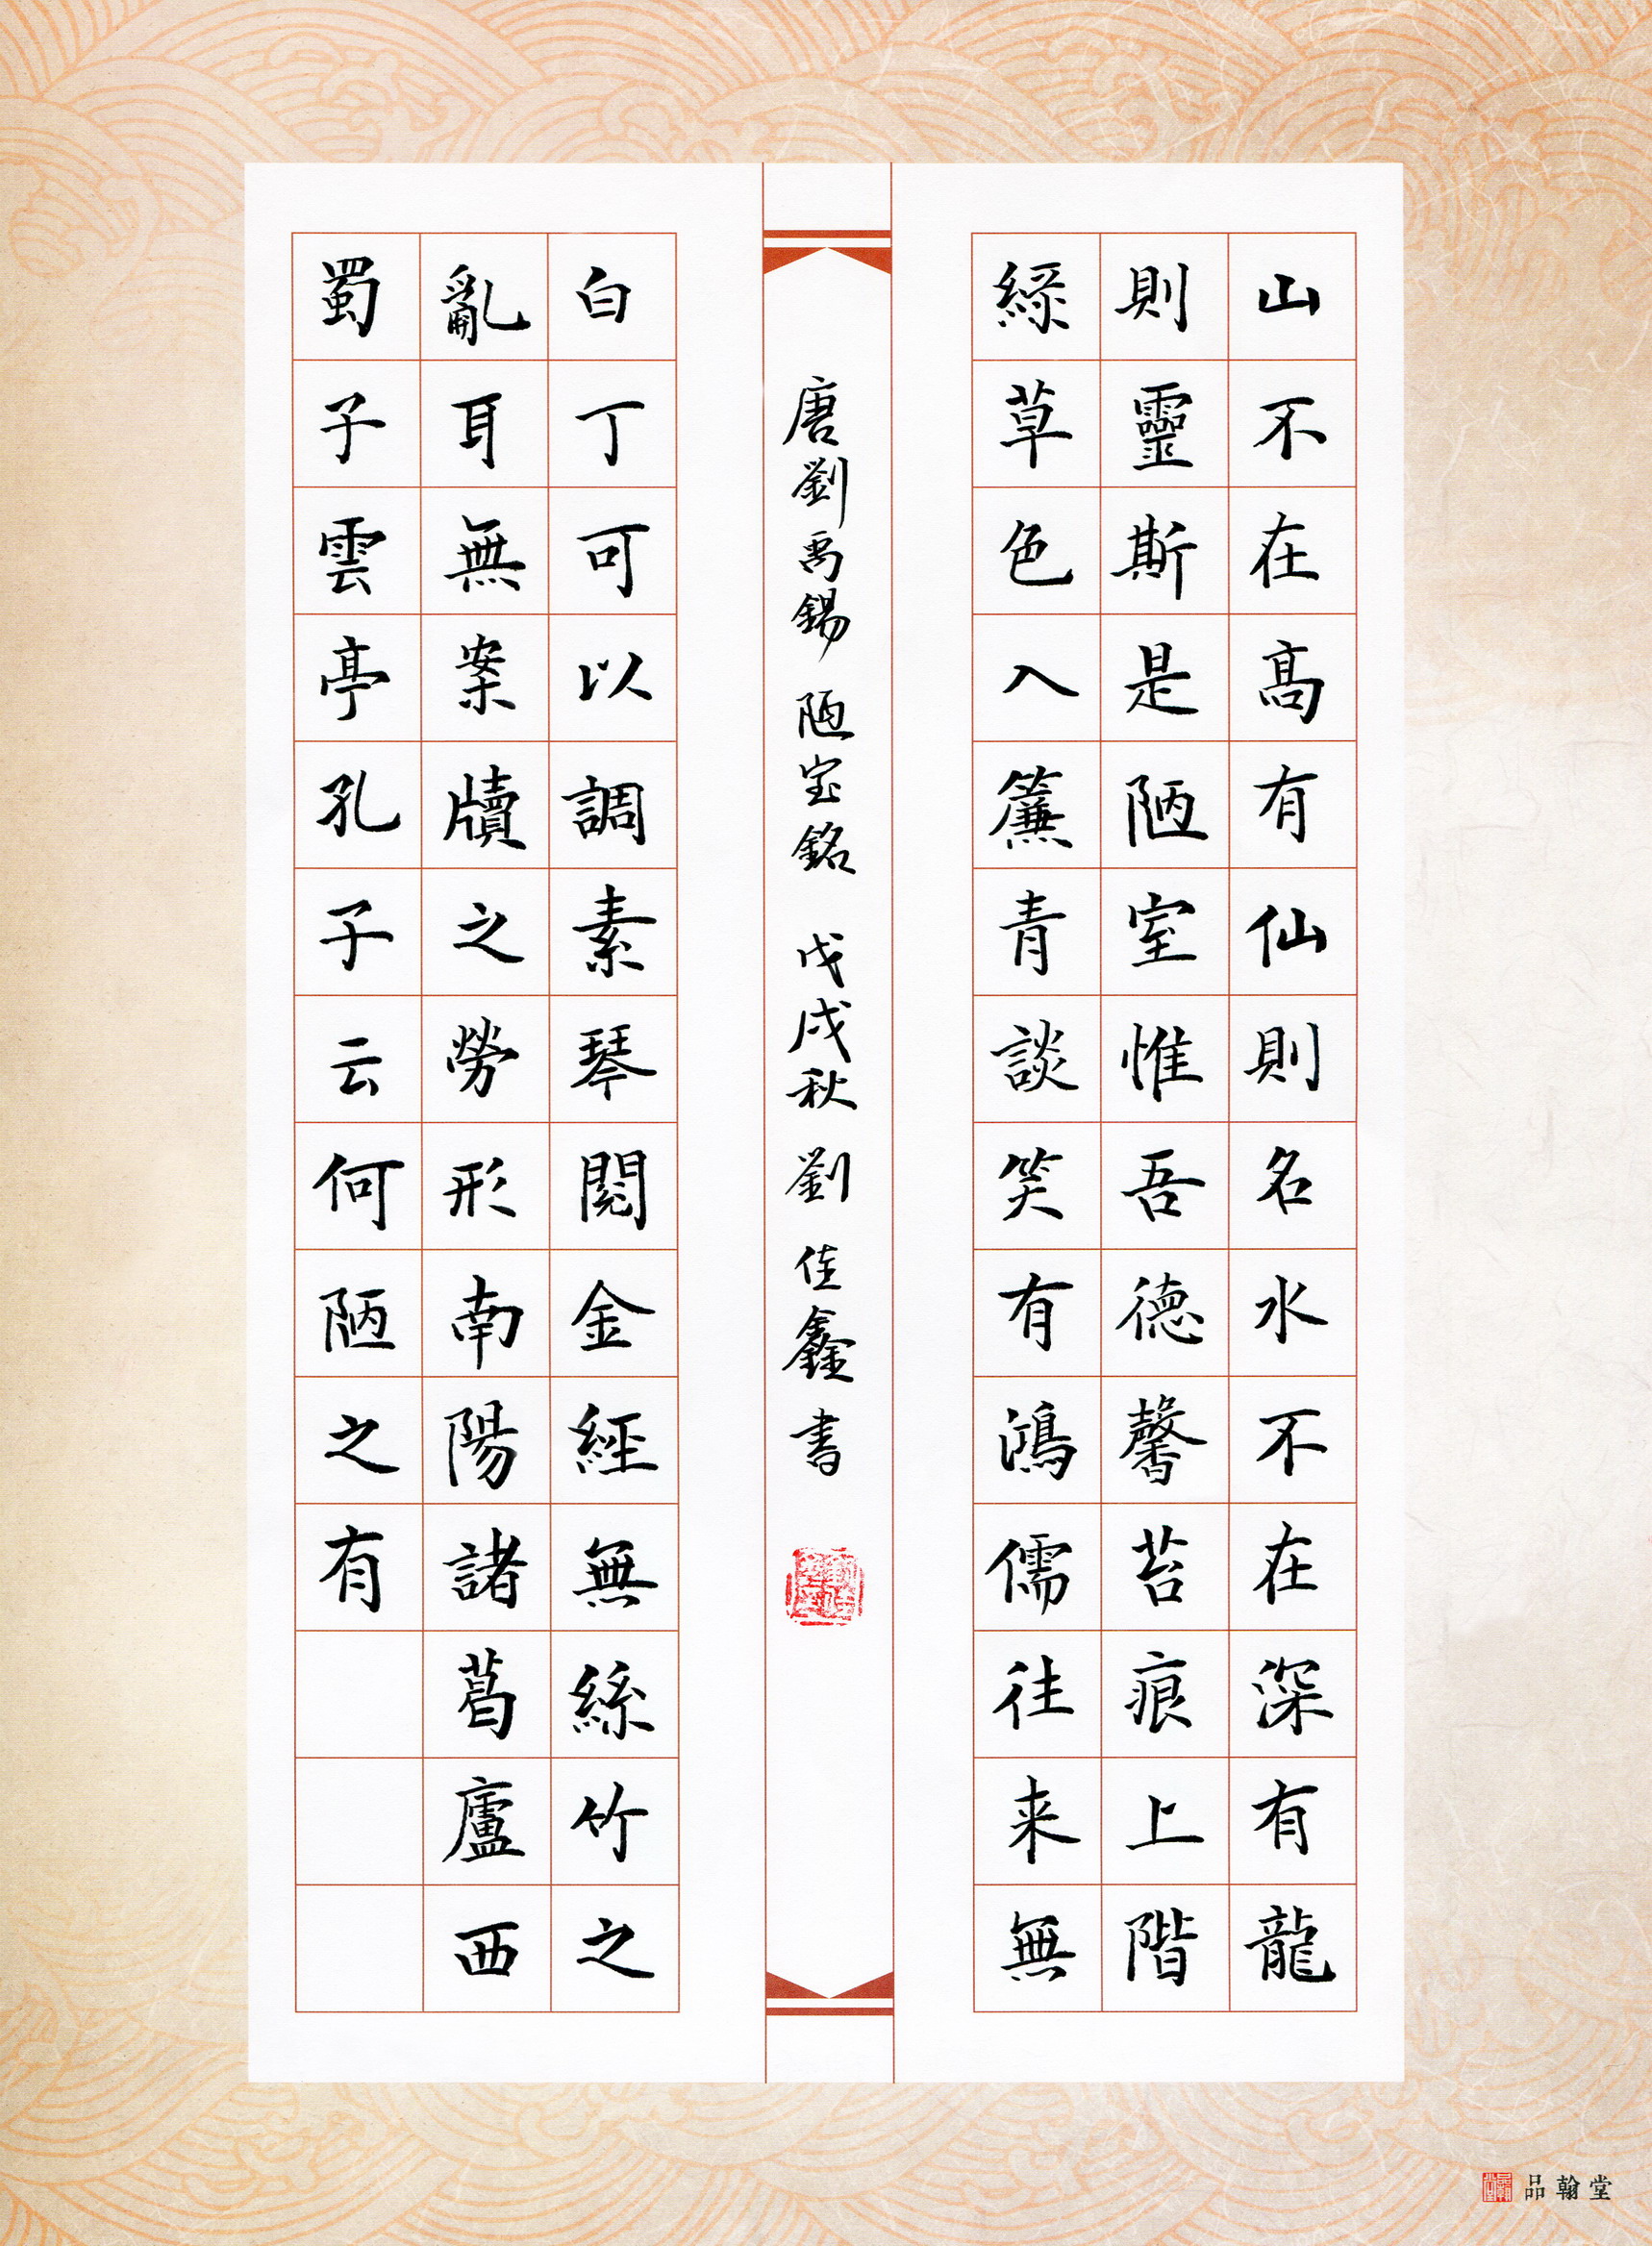 山不在高有仙則名水不在深有龍
則靈斯是陋室惟吾德馨苔痕上階
綠草色入簾青談笑有鴻儒往来無
唐劉禹錫陋室銘戊戌秋劉佳鑫書
白丁可以調素琴閱金經無絲竹之
亂耳無案牘之勞形南陽諸葛廬西
蜀子雲亭孔子云何陋之有
品翰堂